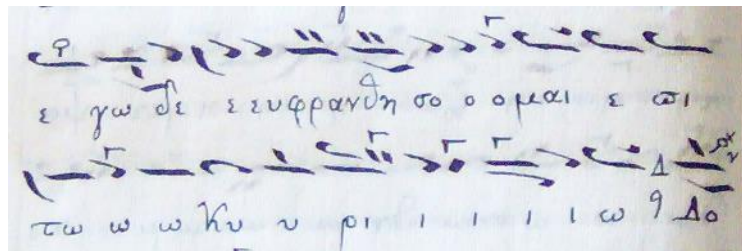 ε γω δε ε ευφρανθη σο ο ομαι ε πι
τω ω ω Κυ υ ρι ι ι ι ι ω Δο